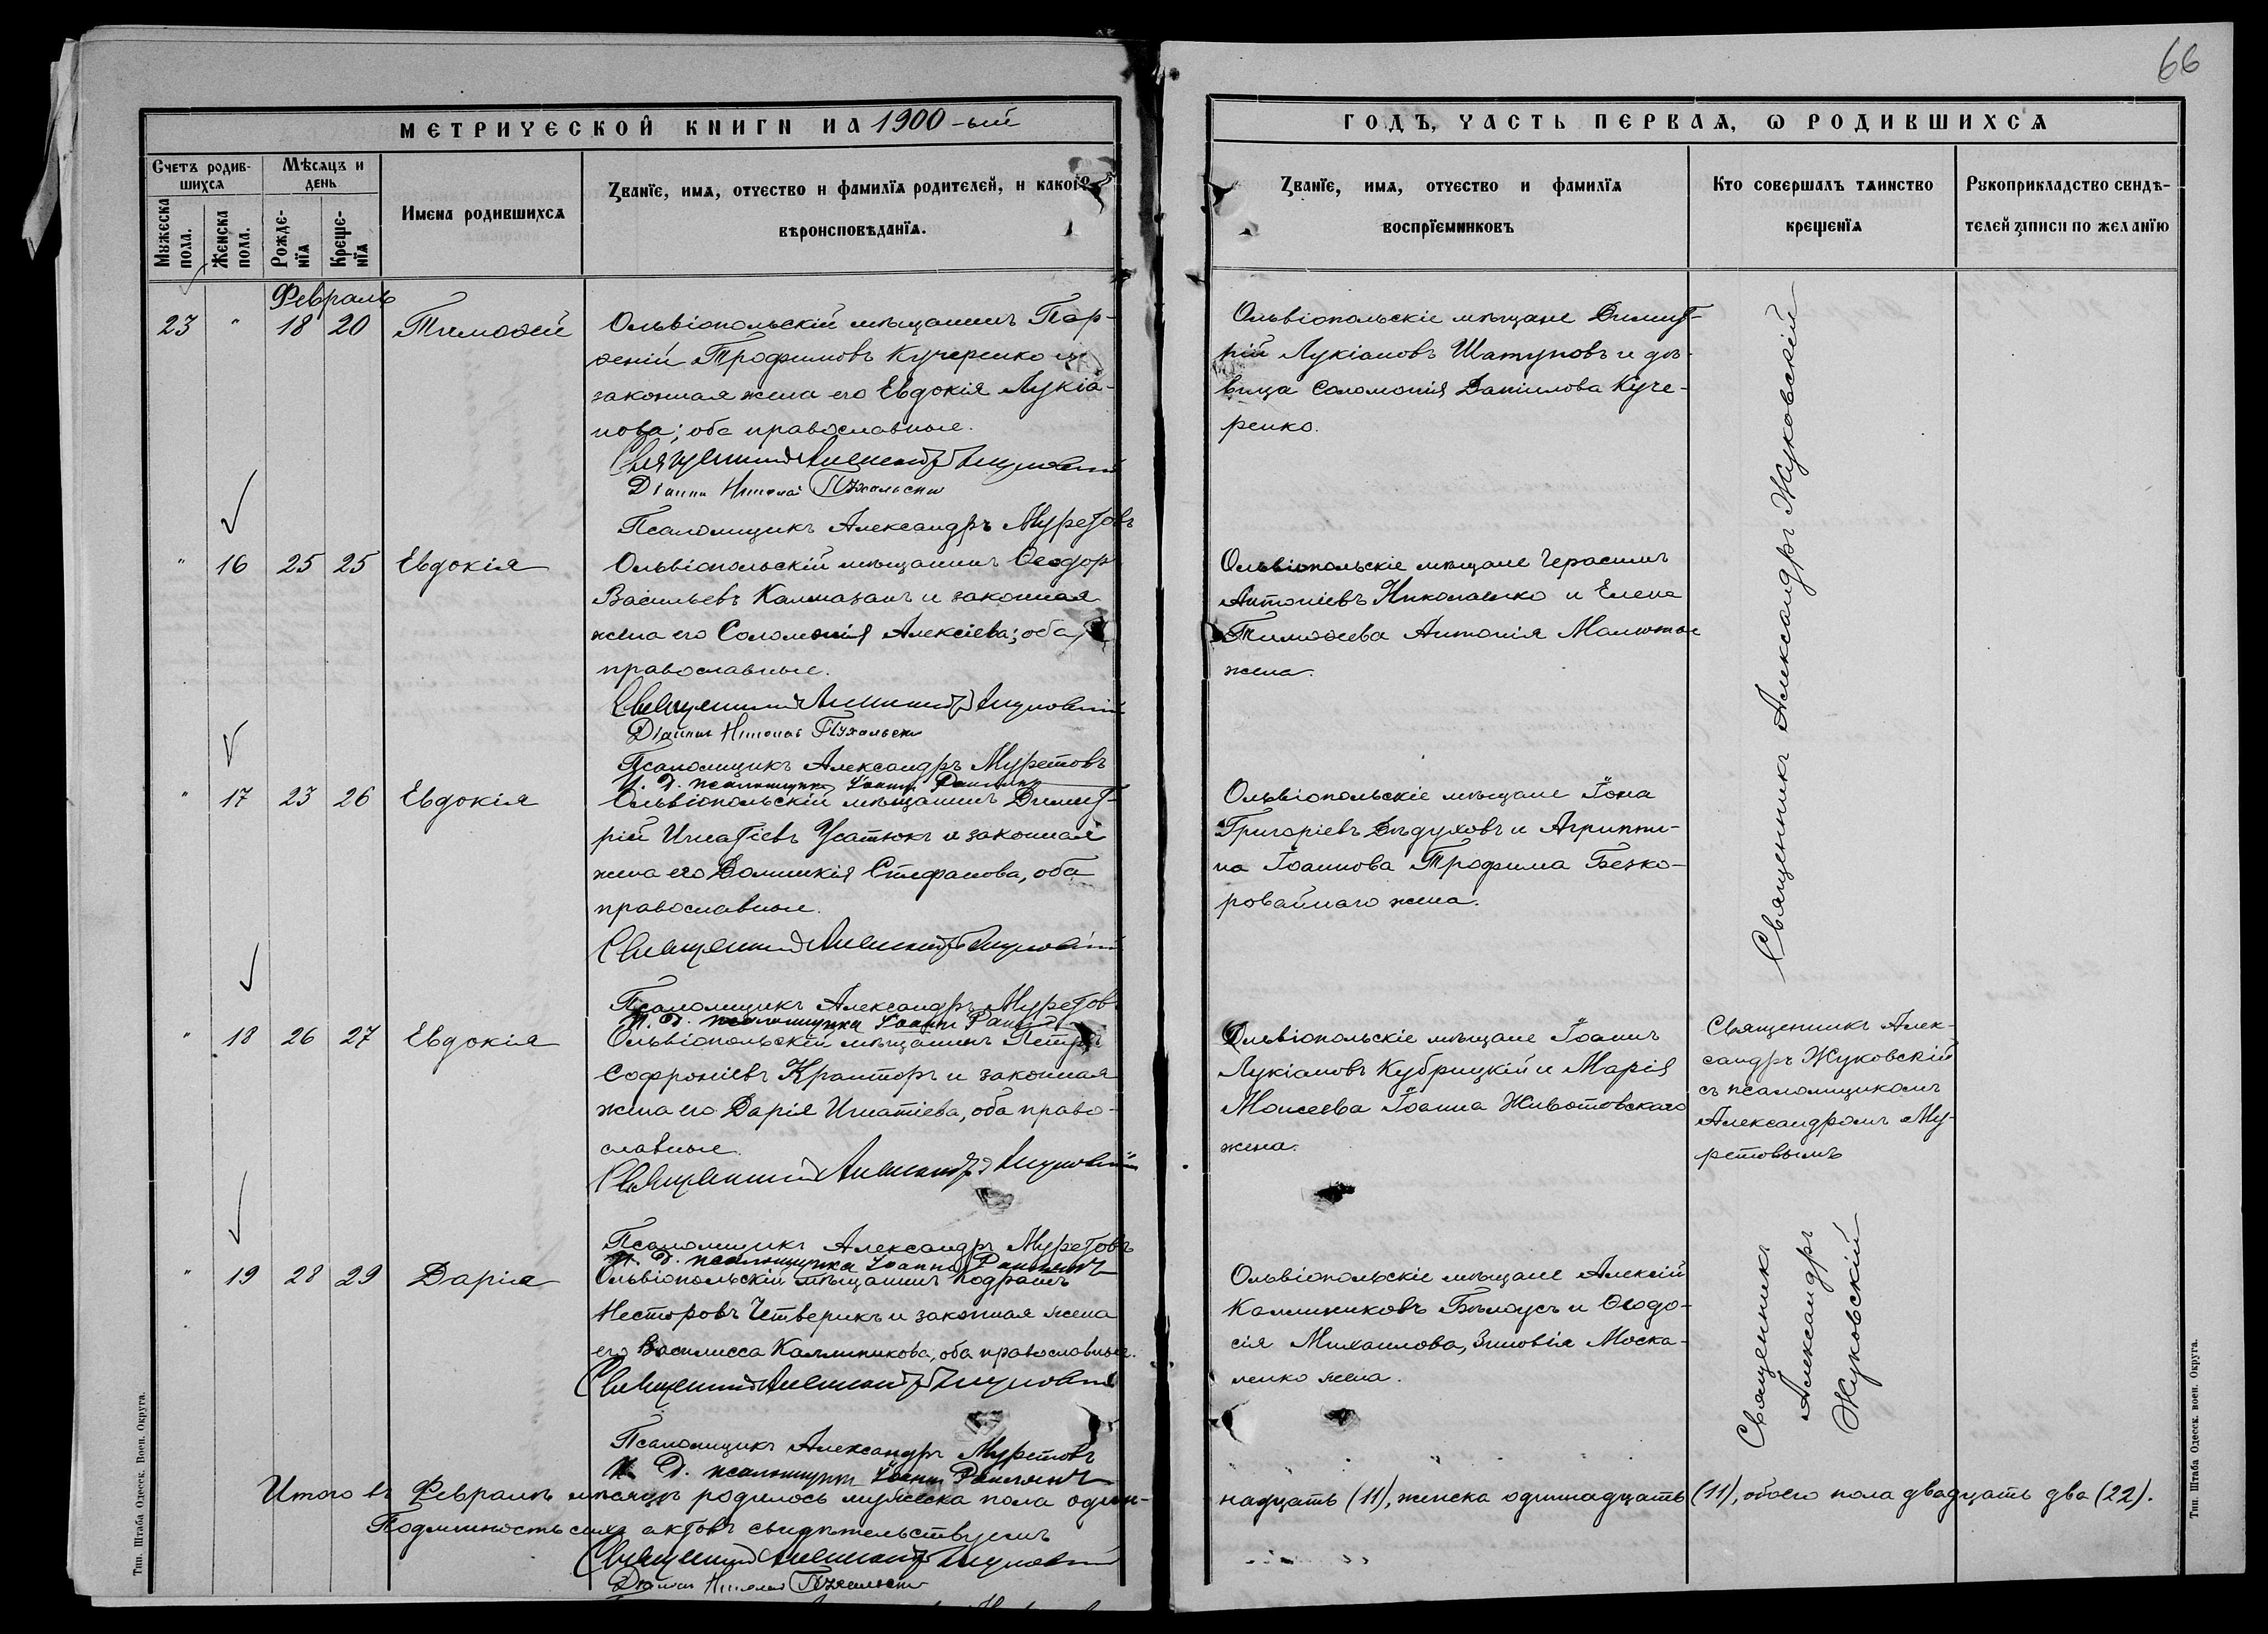 66
МЕТРИЧЕСКОЙ КНИГИ НА 1900-ый
ГОДЪ, ЧАСТЬ ПЕРВАѦ, Ѡ РОДИВШИХСѦ
Счетъ родив-
шихсѧ
Мѣсѧцъ и
день
Мужеска
пола.
Женска
пола.
Рожде-
нїѧ
Креще-
нїѧ
Имена родившихсѧ
Званїе, имѧ, отчество и фамилїѧ родителей, и какогѡ
вѣроисповѣданїѧ.
Званїе, имѧ, отчество и фамилїѧ
воспрїемниковъ
Кто совершалъ таинство
крещенїѧ
Рукоприкладство свидѣ-
телей записи по желанїю
Февраль
23 " 18 20 Тимоѳей
Ольвіопольскій мѣщанинъ Пар-
ѳеній Трофимовъ Кучеренко и
законная жена его Евдокія Лукіа-
нова; оба православные.
Священникъ Александръ Жуковскій
Діаконъ Николай Пухальскій
Псаломщикъ Александръ Муретовъ
Ольвіопольскіе мѣщане Димит-
рій Лукіановъ Шатуновъ и дѣ-
вица Соломонія Даніилова Куче-
ренко.
Священникъ Александръ Жуковскій
" 16 25 25 Евдокія
Ольвіопольскій мѣщанинъ Ѳеодоръ
Васильевъ Калмазанъ и законная
жена его Соломонія Алексіева; оба
православные.
Священникъ Александръ Жуковскій
Діаконъ Николай Пухальскій
Псаломщикъ Александръ Муретовъ
И. д. псаломщика Іоаннъ
Ольвіопольскіе мѣщане Герасимъ
Антоніевъ Николаенко и Елена
Тимоѳеева Антонія
жена.
" 17 23 26 Евдокія
Ольвіопольскій мѣщанинъ Димит-
рій Игнатіевъ Усатюкъ и законная
жена его Домникія Стефанова, оба
православные.
Священникъ Александръ Жуковскій
Псаломщикъ Александръ Муретовъ
И. д. псаломщика Іоаннъ
Ольвіопольскіе мѣщане Іона
Григоріевъ Дѣдуховъ и Агриппи-
на Іоаннова Трофима Безко-
ровайнаго жена.
" 18 26 27 Евдокія
Ольвіопольскій мѣщанинъ Петръ
Софроніевъ Крамторъ и законная
жена его Дарія Игнатіева, оба право-
славные.
Священникъ Александръ Жуковскій
Псаломщикъ Александръ Муретовъ
И. д. псаломщика Іоаннъ
Ольвіопольскіе мѣщане Іоаннъ
Лукіановъ Кубрицкій и Марія
Моисеева Іоанна Животовскаго
жена.
Священникъ Алек-
сандръ Жуковскій
съ псаломщикомъ
Александромъ Му-
ретовымъ
" 19 28 29 Дарія
Ольвіопольскій мѣщанинъ Кодратъ
Несторовъ Четверикъ и законная жена
его Василисса Каллиникова, оба православные.
Священникъ Александръ Жуковскій
Псаломщикъ Александръ Муретовъ
И. д. псаломщика Іоаннъ
Ольвіопольскіе мѣщане Алексій
Каллиниковъ Бѣлоусъ и Ѳеодо-
сія Михаилова, Зиновія Моска-
ленко жена.
Священникъ
Александръ
Жуковскій
Итого въ Февралѣ мѣсяцѣ родилось мужеска пола один-
надцать (11), женска одиннадцать (11), обоего пола двадцать два (22).
Подлинность сихъ актовъ свидѣтельствуемъ
Священникъ Александръ Жуковскій
Діаконъ Николай Пухальскій
Тип. Штаба Одесск. Воен. Округа.
Тип. Штаба Одесск. воен. Округа.